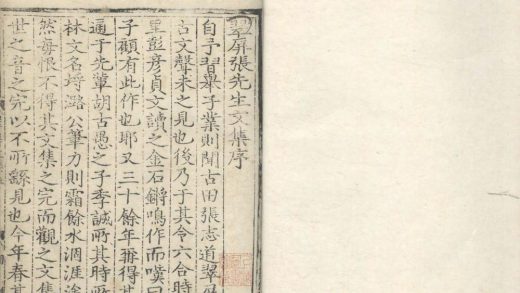 翠屏張先生文集序
自予習舉子業則聞古田張志道翠屏
古文聲未之見也後乃于其令六合時
里彭彦貞文讀之金石鏘鳴作而嘆曰
子顧有此作也耶又三十餘年再得其
通于先軰胡古愚之子季誠所其時所
林文名埒潞公筆力則霜餘水涸涯涘
然每恨不得其文集之完而觀之文集
世之音之完以不所繇見也今年春其